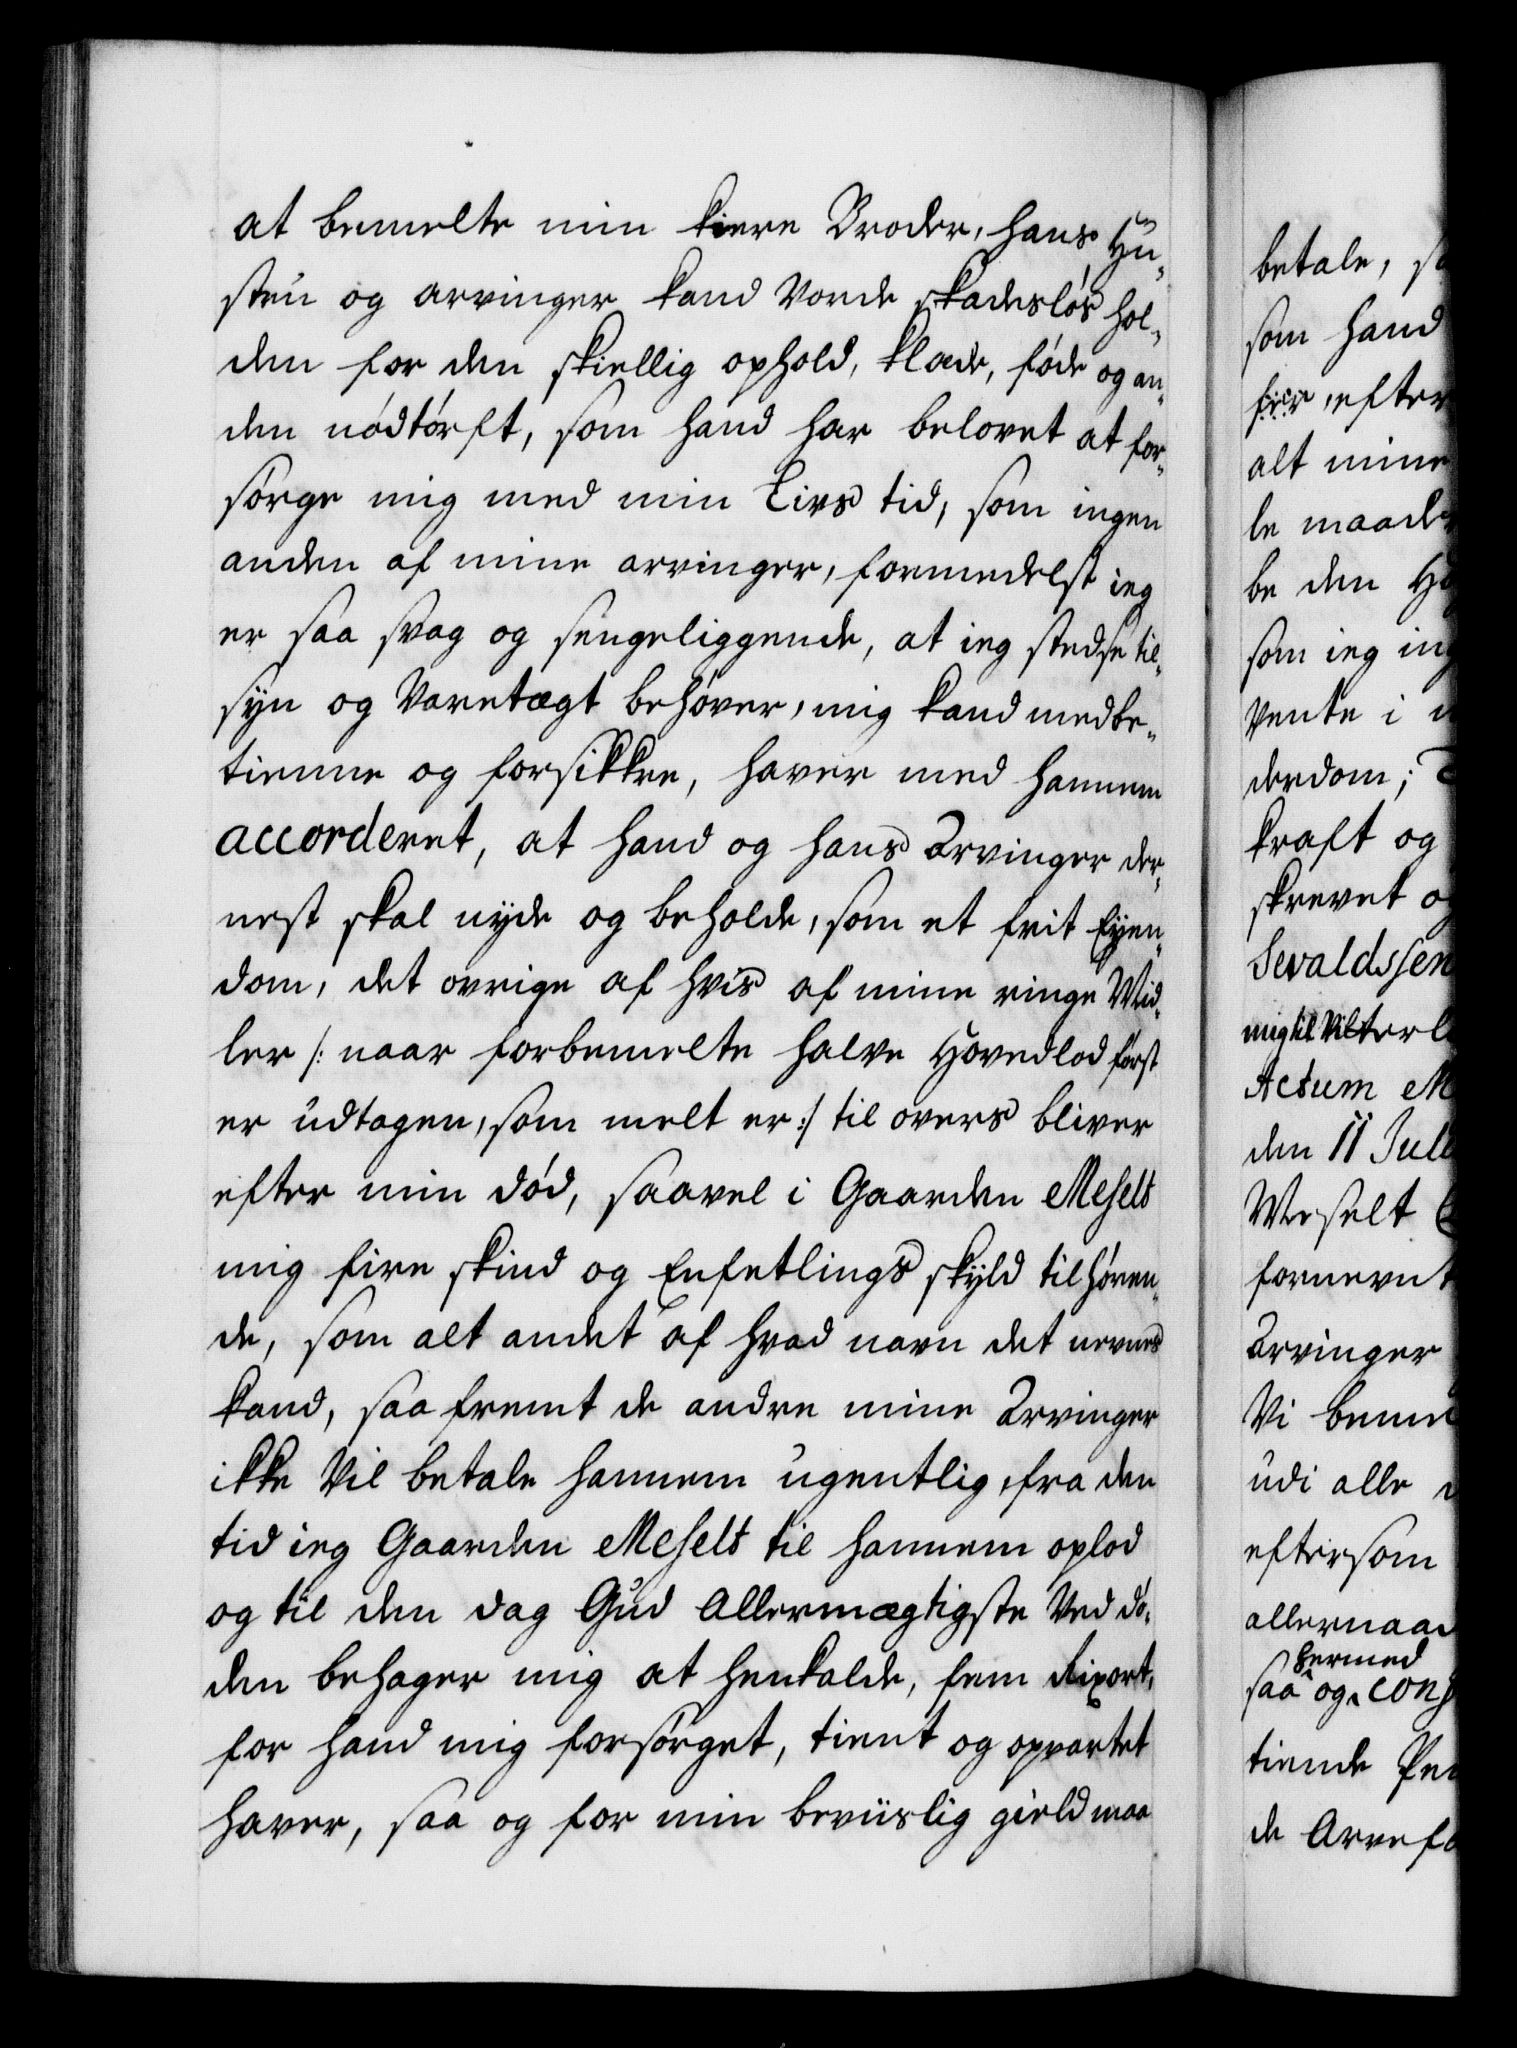 at bemelte min kiere Broder, hans Hu-
stru og arvinger kand vorde skadesløs hol-
den for den skiellig ophold, klæde, føde og an-
den nødtørft, som hand har belovet at for-
sørge mig med min Livs tid, som ingen
anden af mine arvinger, formedelst ieg
er saa svag og sengeliggende, at ieg stedse til-
syn og Varetægt behøver, mig kand medbe-
tienne og forsikkre, haver med hannem
accorderet, at hand og hans Arvinger der-
nest skal nyde og beholde, som et frit Eyen-
dom, det ovrige af hvis af mine ringe Mid-
ler /: naar forbemelte halve Hovedlod først
er udtagen, som melt er :/ til overs bliver
efter min død, saavel i Gaarden Meselt
mig fire skind og Enfetlings skyld tilhøren-
de, som alt andet af hvad navn det nevnes
kand, saa fremt de andre mine Arvinger
ikke Vil betale hannem ugentlig, fra den
tid ieg Gaarden Meselt til hannem oplod
og til den dag Gud Allermægtigste Ved dø-
den behager mig at henkalde, fem Rixort,
for hand mig forsørget, tient og opvartet
haver, saa og for min beviislig gield maa
betale, s
som hand
efter
alt mine
le maade
be den
som ieg in
vente i
derdom;
kraft og
skrevet o
Sevaldssen
mig til Vitterl
Actum M
den 11 Juli
Meselt
fornevnt
Arvinger
Vi beme
udi alle
eftersom
allernaa
hermed
saa og conf
tiende Pe
de Arvefo